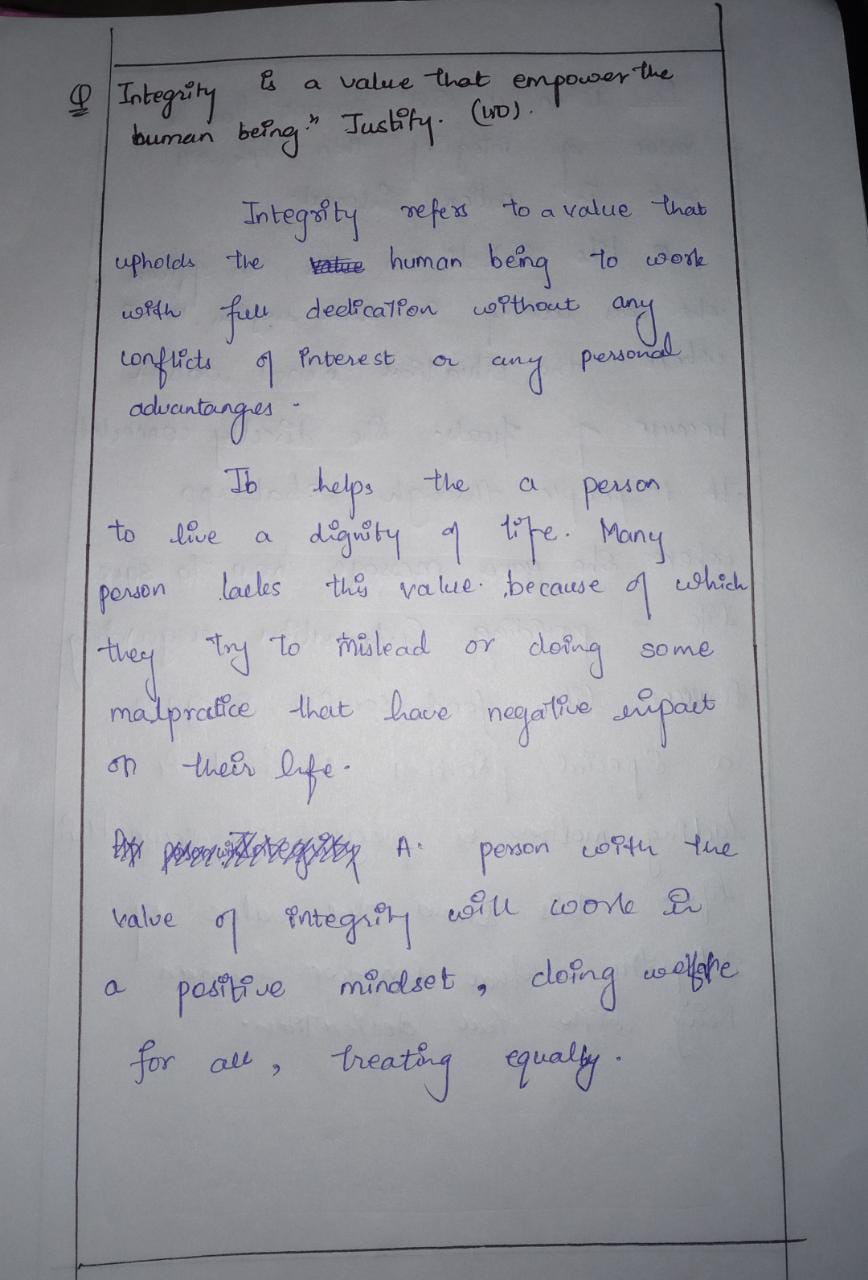 Q Integrity is a value that empower the
human being." Justify. (10).
Integrity refers to a value that
upholds the value human being to work
with full dedication without any
conflicts of interest or any personal
advantanges.
It helps the a person
to live a dignity of life. Many
person lacks this value. because of which
they try to mislead or doing some
malpratice that have negative impact
on their life.
A. person with the
value of integrity will work in
a positive mindset, doing welfare
for all, treating equally.